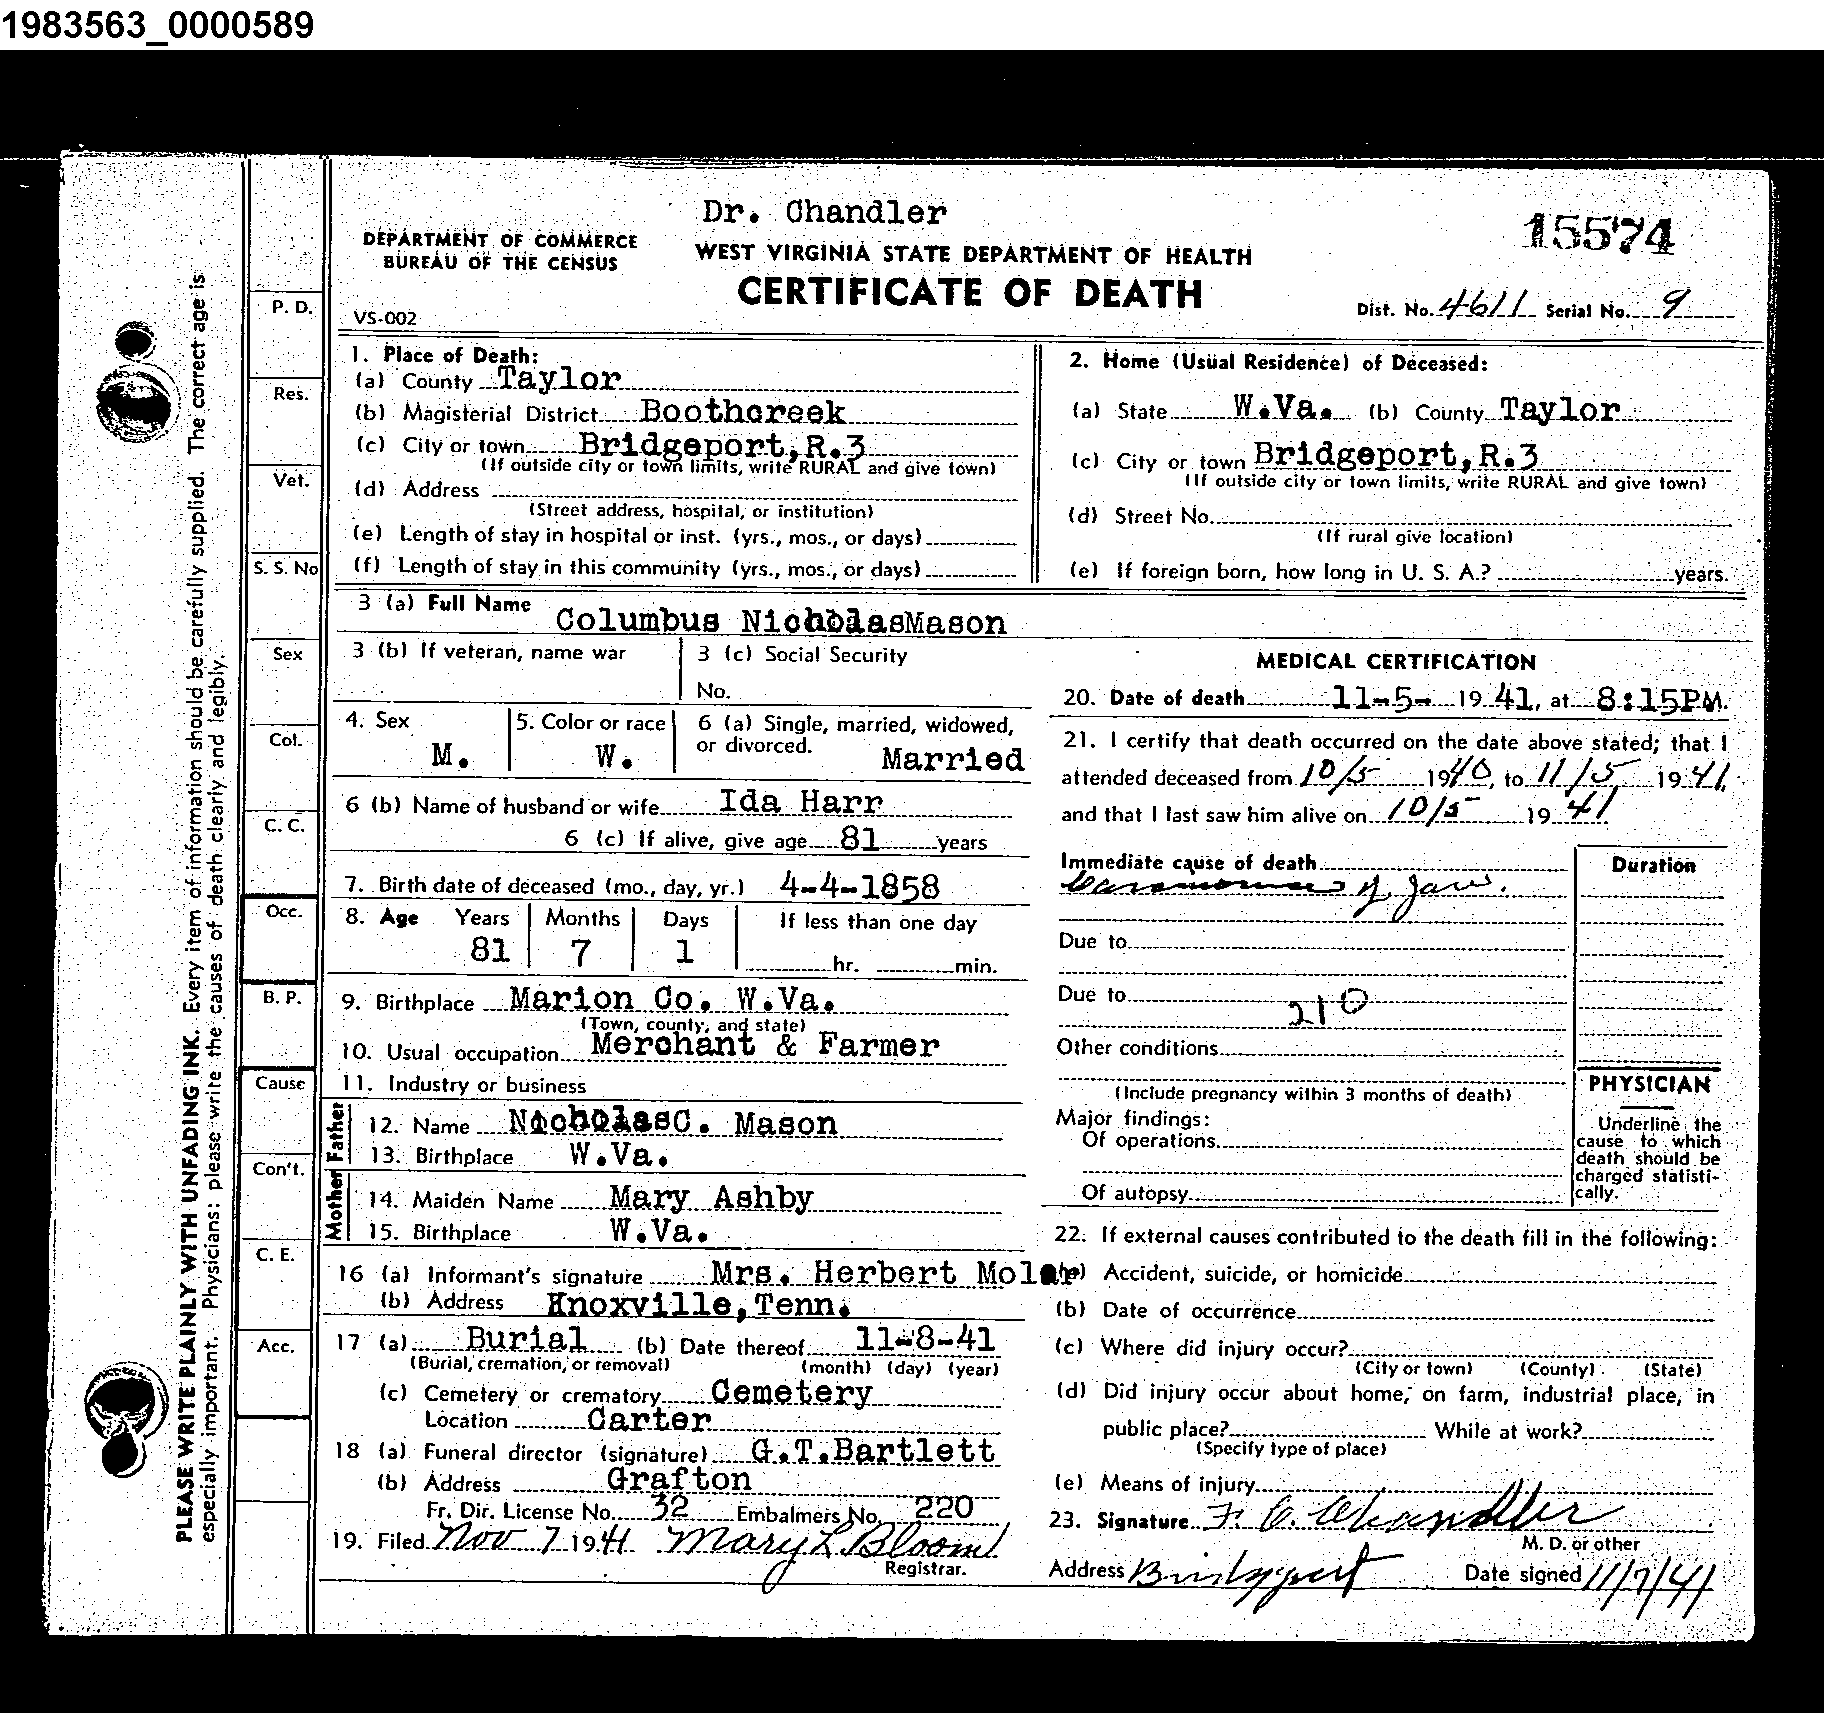 1983563_0000589
Dr. Chandler
15574
DEPARTMENT OF COMMERCE
BUREAU OF THE CENSUS
WEST VIRGINIA STATE DEPARTMENT OF HEALTH
CERTIFICATE OF DEATH
VS-002
Dist. No. 4611 Serial No. 9
PLEASE WRITE PLAINLY WITH UNFADING INK. Every item of information should be carefully supplied. The correct age is
especially important. Physicians; please write the causes of death clearly and legibly.
P. D.
Res.
Vet.
S. S. No
Sex
Col.
C. C.
Occ.
B. P.
Cause
Con't.
C. E.
Acc.
1. Place of Death:
(a) County Taylor
(b) Magisterial District Boothcreek
(c) City or town Bridgeport, R.3
(If outside city or town limits, write RURAL and give town)
(d) Address
(Street address, hospital, or institution)
(e) Length of stay in hospital or inst. (yrs., mos., or days)
(f) Length of stay in this community (yrs., mos., or days)
2. Home (Usual Residence) of Deceased:
(a) State W.Va. (b) County Taylor
(c) City or town Bridgeport, R.3
(If outside city or town limits, write RURAL and give town)
(d) Street No.
(If rural give location)
(e) If foreign born, how long in U. S. A.? years.
3 (a) Full Name Columbus Nicholas Mason
3 (b) If veteran, name war
3 (c) Social Security
No.
4. Sex M.
5. Color or race W.
6 (a) Single, married, widowed,
or divorced. Married
6 (b) Name of husband or wife Ida Harr
6 (c) If alive, give age 81 years
7. Birth date of deceased (mo., day, yr.) 4-4-1858
8. Age Years Months Days If less than one day
81 7 1 hr. min.
9. Birthplace Marion Co. W.Va.
(Town, county, and state)
10. Usual occupation Merchant & Farmer
11. Industry or business
Father
12. Name Nicholas C. Mason
13. Birthplace W.Va.
Mother
14. Maiden Name Mary Ashby
15. Birthplace W.Va.
16 (a) Informant's signature Mrs. Herbert Molar
(b) Address Knoxville, Tenn.
17 (a) Burial (b) Date thereof 11-8-41
(Burial, cremation, or removal) (month) (day) (year)
(c) Cemetery or crematory Cemetery
Location Carter
18 (a) Funeral director (signature) G.T.Bartlett
(b) Address Grafton
Fr. Dir. License No. 32 Embalmers No. 220
19. Filed Nov 7 1941 Mary L. Bloom
Registrar.
MEDICAL CERTIFICATION
20. Date of death 11-5- 1941, at 8:15PM.
21. I certify that death occurred on the date above stated; that I
attended deceased from 10/5 1940, to 11/5 1941,
and that I last saw him alive on 10/5 1941
Immediate cause of death
of jaw.
Duration
Due to
Due to
210
Other conditions
(Include pregnancy within 3 months of death)
Major findings:
Of operations
Of autopsy
PHYSICIAN
Underline the
cause to which
death should be
charged statisti-
cally.
22. If external causes contributed to the death fill in the following:
(a) Accident, suicide, or homicide
(b) Date of occurrence
(c) Where did injury occur?
(City or town) (County) (State)
(d) Did injury occur about home, on farm, industrial place, in
public place? While at work?
(Specify type of place)
(e) Means of injury
23. Signature F. O. Chandler
M. D. or other
Address Bridgeport Date signed 11/7/41